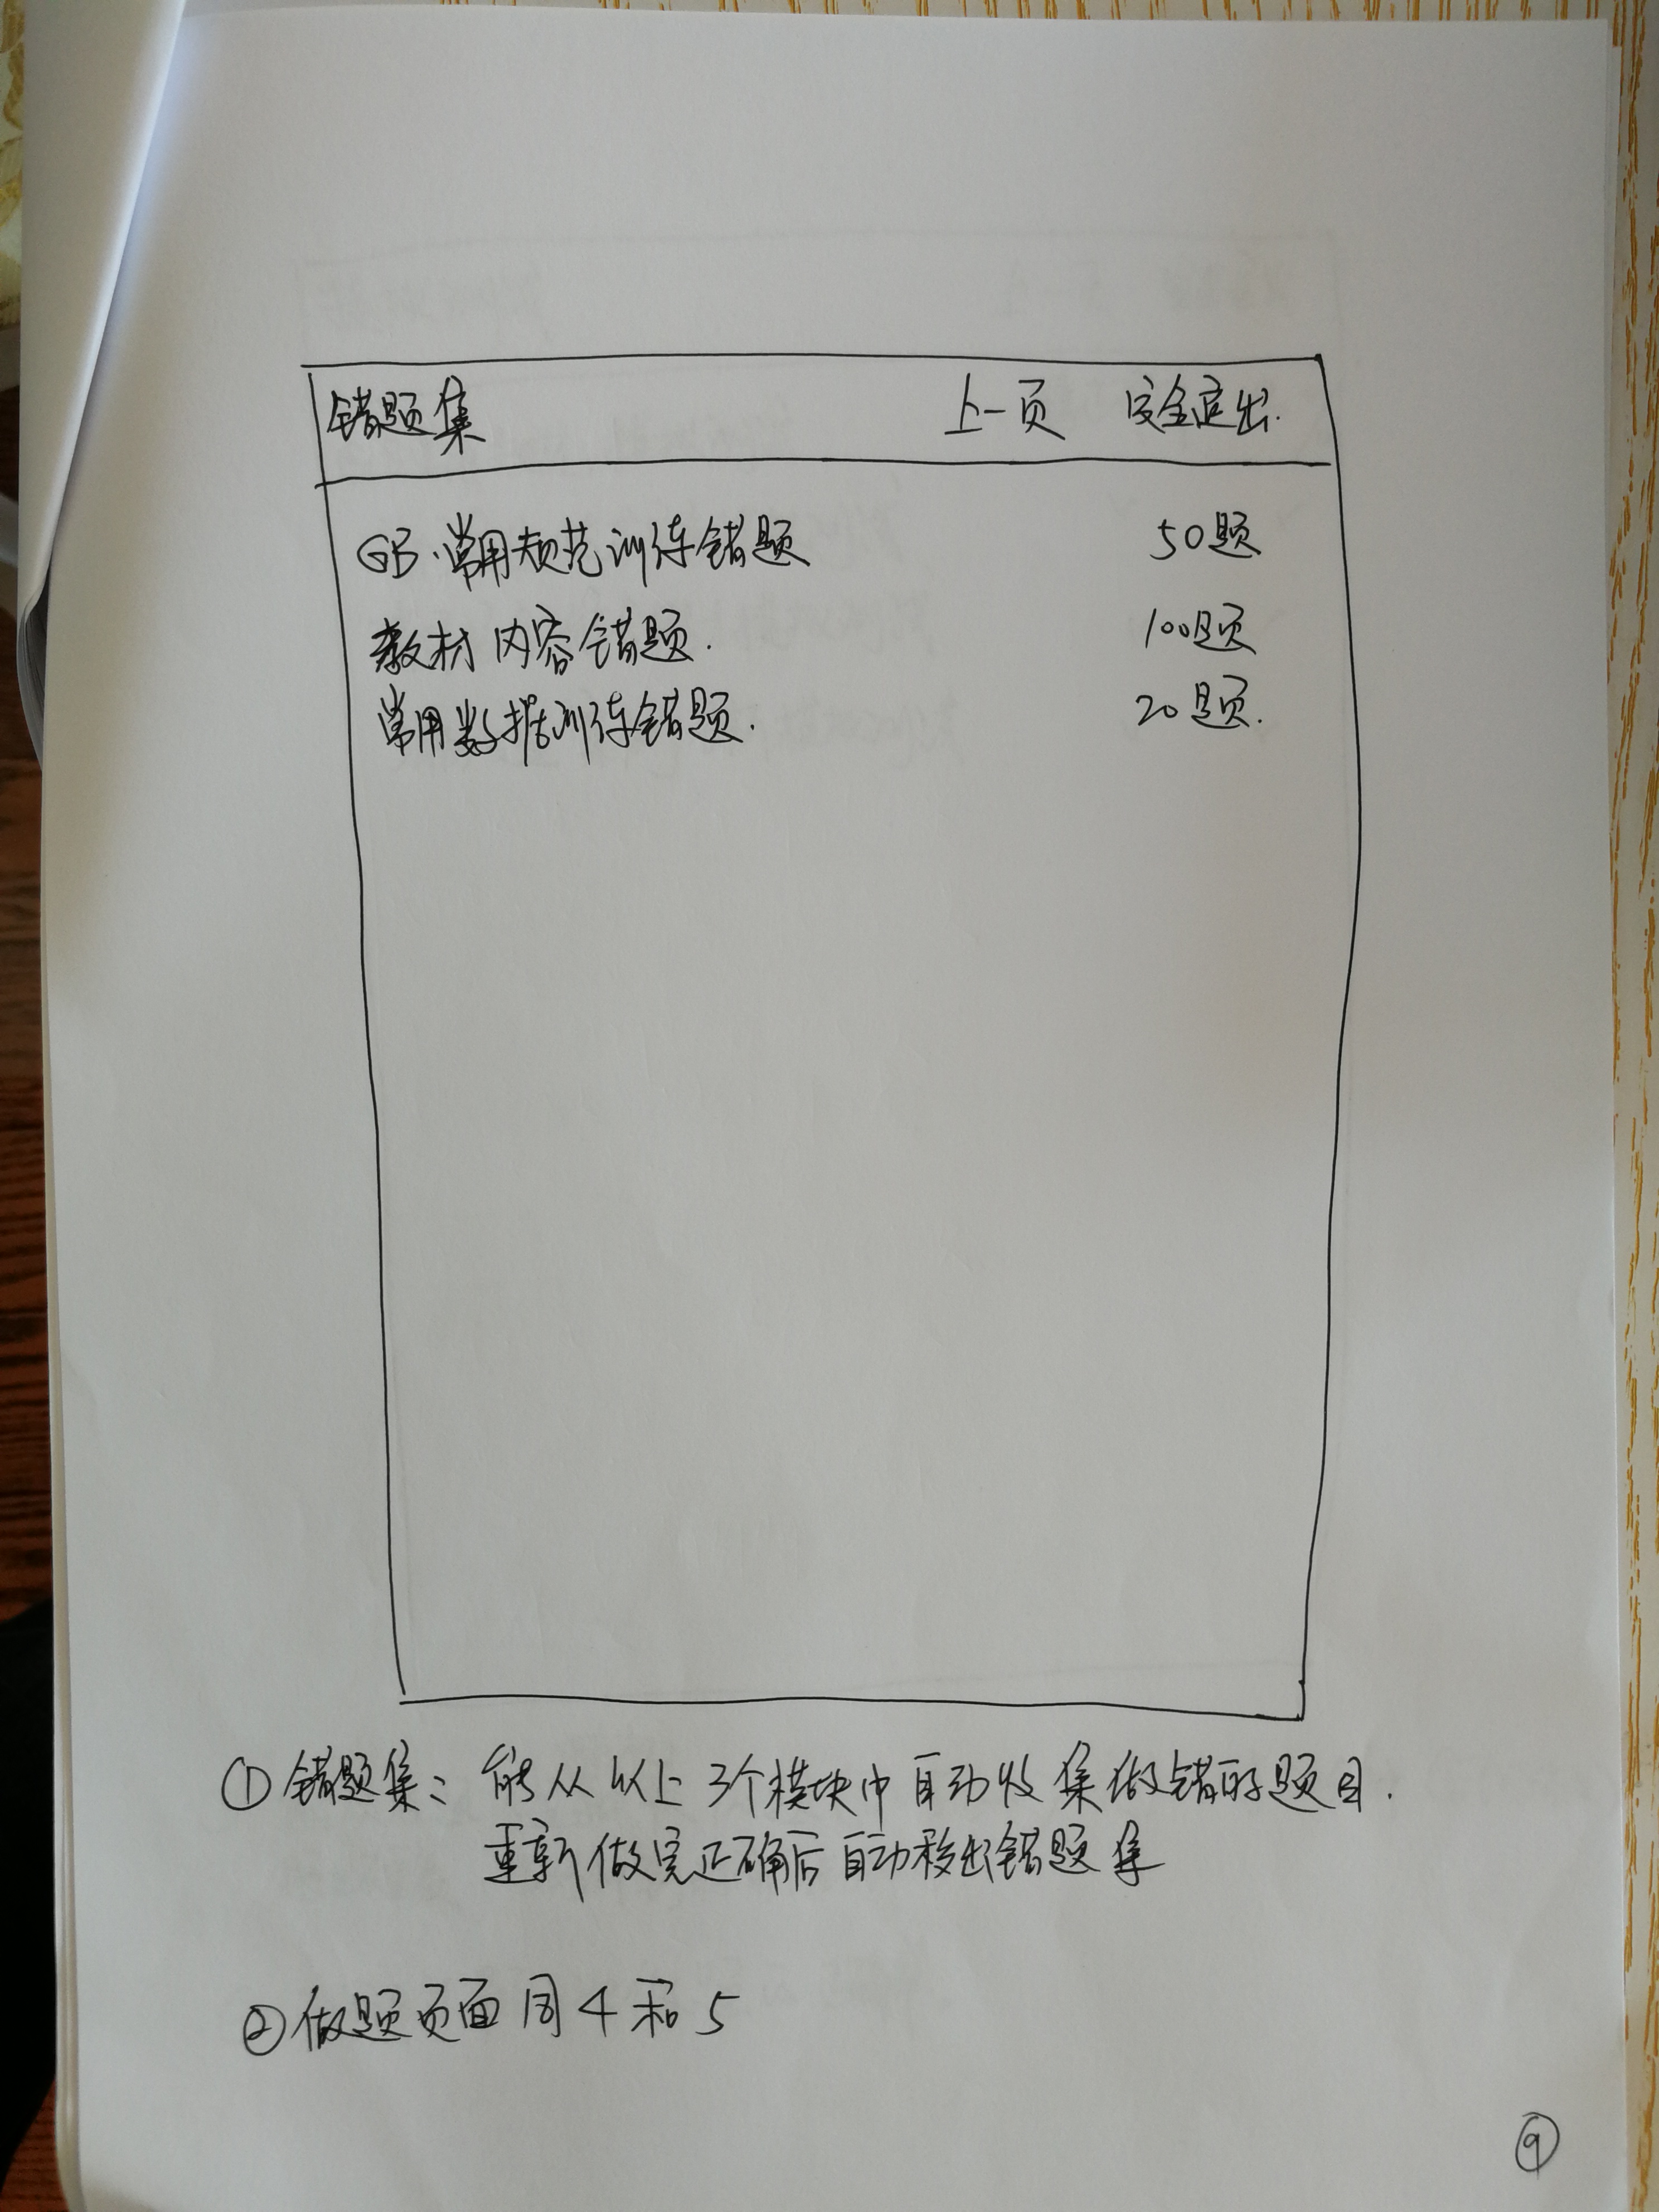 错题集 上一页 安全退出.
GB.常用规范训练错题 50题
教材内容错题. 100题
常用数据训练错题. 20题.
①错题集: 能从以上3个模块中自动收集做错的题目.
重新做完正确后自动移出错题集
②做题页面同4和5
⑨